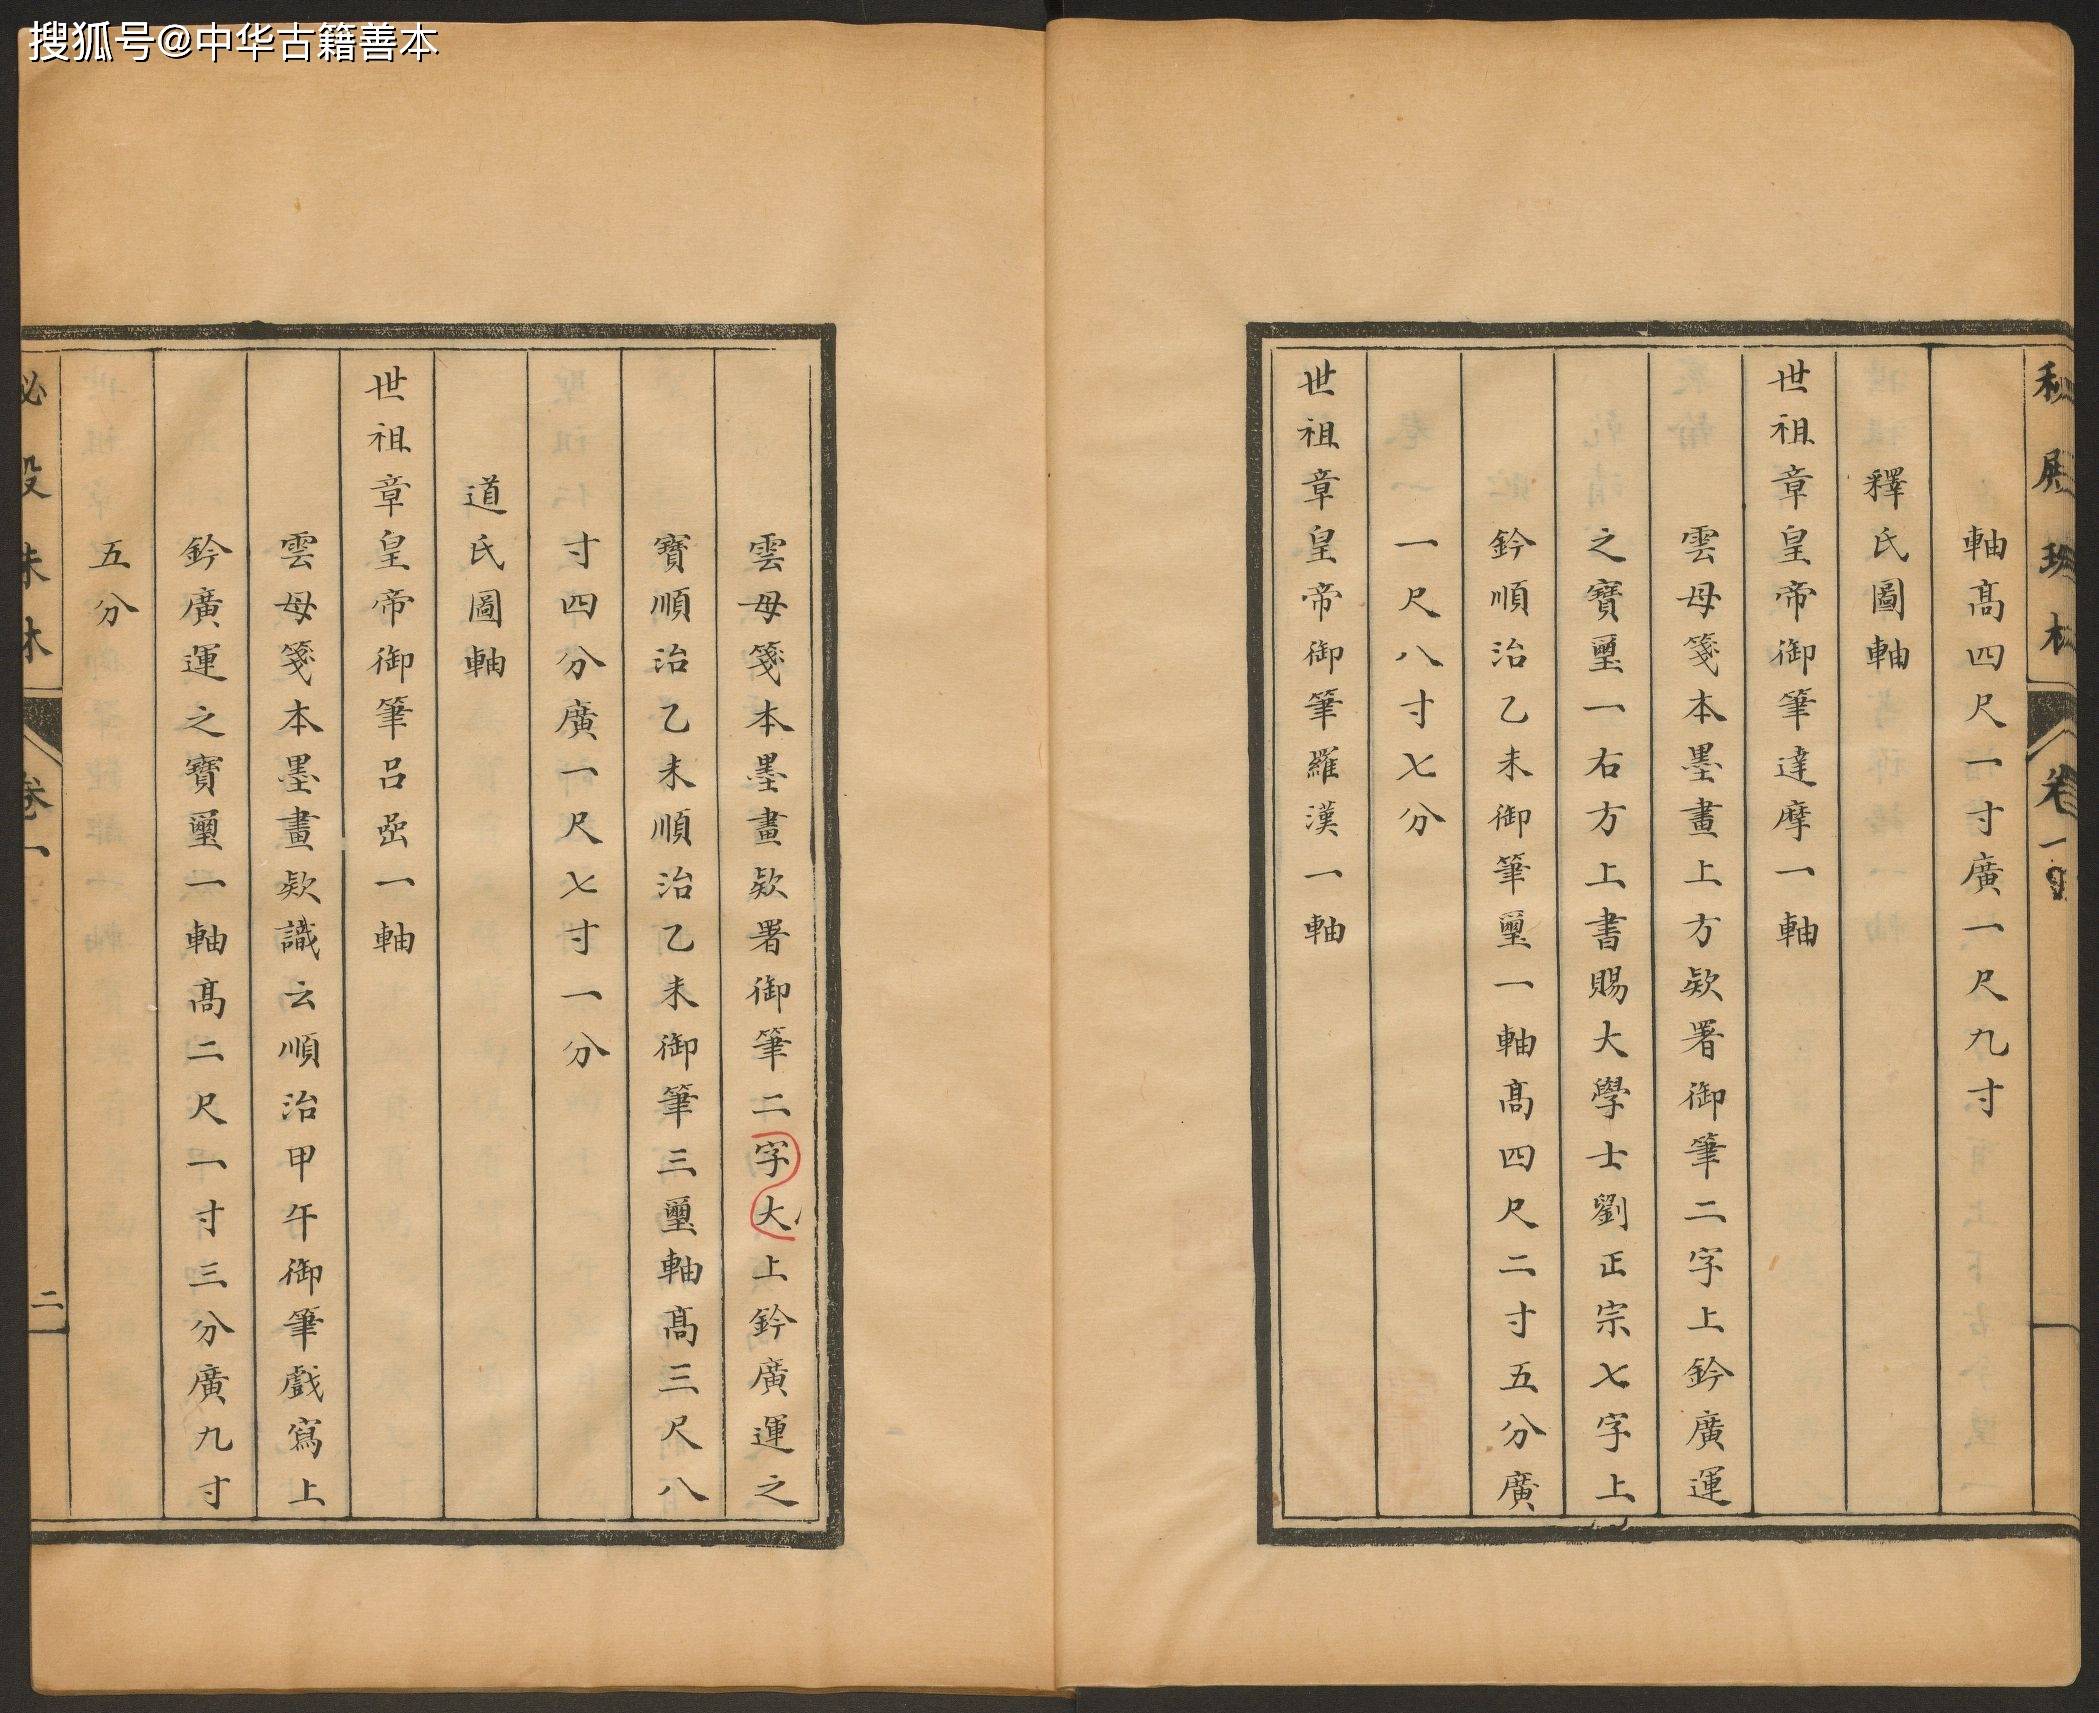 搜狐号@中华古籍善本
軸高四尺一寸廣一尺九寸
釋氏圖軸
世祖章皇帝御筆達摩一軸
雲母箋本墨畫上方欵署御筆二字上鈐廣運
之寶璽一右方上書賜大學士劉正宗七字上
鈐順治乙未御筆璽一軸高四尺二寸五分廣
一尺八寸七分
世祖章皇帝御筆羅漢一軸
雲母箋本墨畫欵署御筆二字大上鈐廣運之
寶順治乙未順治乙未御筆三璽軸高三尺八
寸四分廣一尺七寸一分
道氏圖軸
世祖章皇帝御筆呂嵒一軸
雲母箋本墨畫欵識云順治甲午御筆戲寫上
鈐廣運之寶璽一軸高二尺一寸三分廣九寸
五分
殿珠林
卷一
二